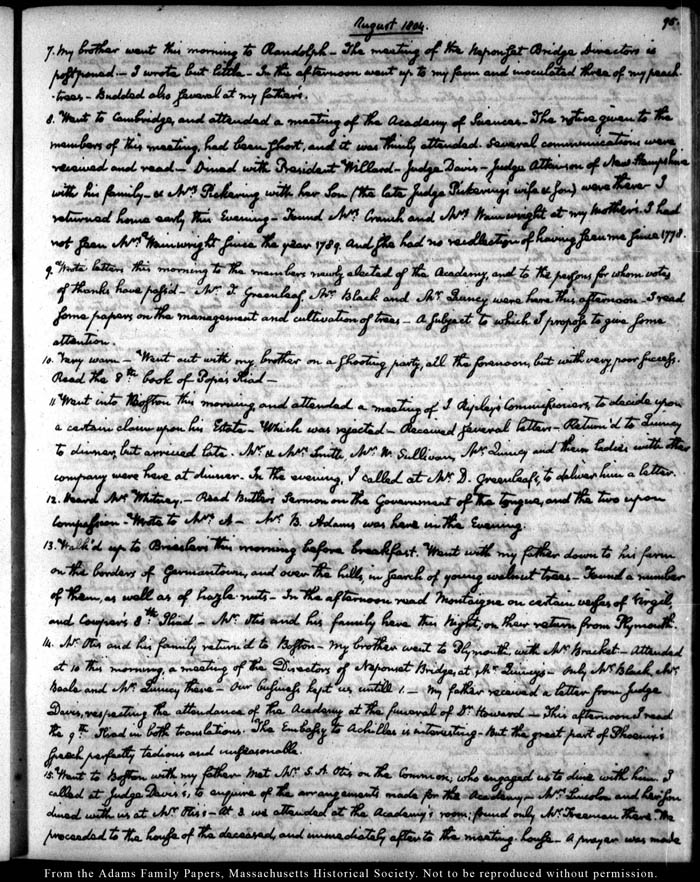 August 1804.
95.
7. My brother went this morning to Randolph – The meeting of the Neponset Bridge Directors is
postponed – I wrote but little – In the afternoon went up to my farm and inoculated three of my peach
-trees – Budded also several at my father's.
8. Went to Cambridge, and attended a meeting of the Academy of Sciences – The notice given to the
members of this meeting, had been short, and it was thinly attended. Several communications were
received and read – Dined with President Willard – Judge Davis – Judge Atkinson of New-Hampshire
with his family – & Mrs. Pickering with her Son (the late Judge Pickering's wife & son) were there. I
returned home early this Evening – Found Mrs. Cranch and Mrs. Wainwright at my Mother's. I had
not seen Mrs. Wainwright since the year 1789. And she had no recollection of having seen me since 1778.
9. Wrote letters this morning to the members newly elected of the Academy, and to the persons for whom votes
of thanks have pass'd – Mr. T. Greenleaf, Mr. Black and Mr. Quincy were here this afternoon – I read
some papers, on the management and cultivation of trees – A subject to which I propose to give some
attention.
10. Very warm – Went out with my brother on a shooting party, all the forenoon, but with very poor success.
Read the 8th. book of Pope's Iliad –
11. Went into Boston this morning, and attended a meeting of Ripley's Commissioners, to decide upon
a certain claim upon his Estate – Which was rejected – Received several letters – Return'd to Quincy
to dinner, but arrived late. Mr. & Mrs. Smith, Mr. W. Sullivan, Mr. Quincy and their Ladies with other
company were here at dinner. In the evening, I called at Mr. D. Greenleaf's, to deliver him a letter.
12. Heard Mr. Whitney. – Read Butler's Sermon on the Government of the tongue, and the two upon
Compassion – Wrote to Mrs. A – Mr. B. Adams was here in the Evening.
13. Walk'd up to this morning before breakfast. Went with my father down to his farm
on the borders of Germantown, and over the hills, in search of young walnut trees – Found a number
of them, as well as of hazle nuts – In the afternoon read Montaigne on certain verses of Virgil,
and Cowper's 8th. Iliad – Mr. Otis and his family here this Night, on their return from Plymouth.
14. Mr. Otis and his family return'd to Boston – My brother went to Plymouth with Mr. Bracket – Attended
at 10 this morning, a meeting of the Directors of Neponset Bridge, at Mr. Quincy's – Only Mr. Black, Mr.
Beale and Mr. Quincy there – Our business kept us untill 1. – My father received a letter from Judge
Davis, respecting the attendance of the Academy at the funeral of Dr. Howard – This afternoon I read
the 9th. Iliad in both translations. The Embassy to Achilles is interesting – But the great part of Phoenix's
speech perfectly tedious and unseasonable.
15. Went to Boston with my father. Met Mr. S. A. Otis on the Common; who engaged us to dine with him. I
called at Judge Davis's, to enquire of the arrangements made for the Academy – Mrs. Lincoln and her Son
dined with us at Mr. Otis's – At 3 we attended at the Academy's room; found only Mr. Freeman there. We
proceeded to the house of the deceased, and immediately after to the meeting-house – A prayer was made
From the Adams Family Papers, Massachusetts Historical Society. Not to be reproduced without permission.